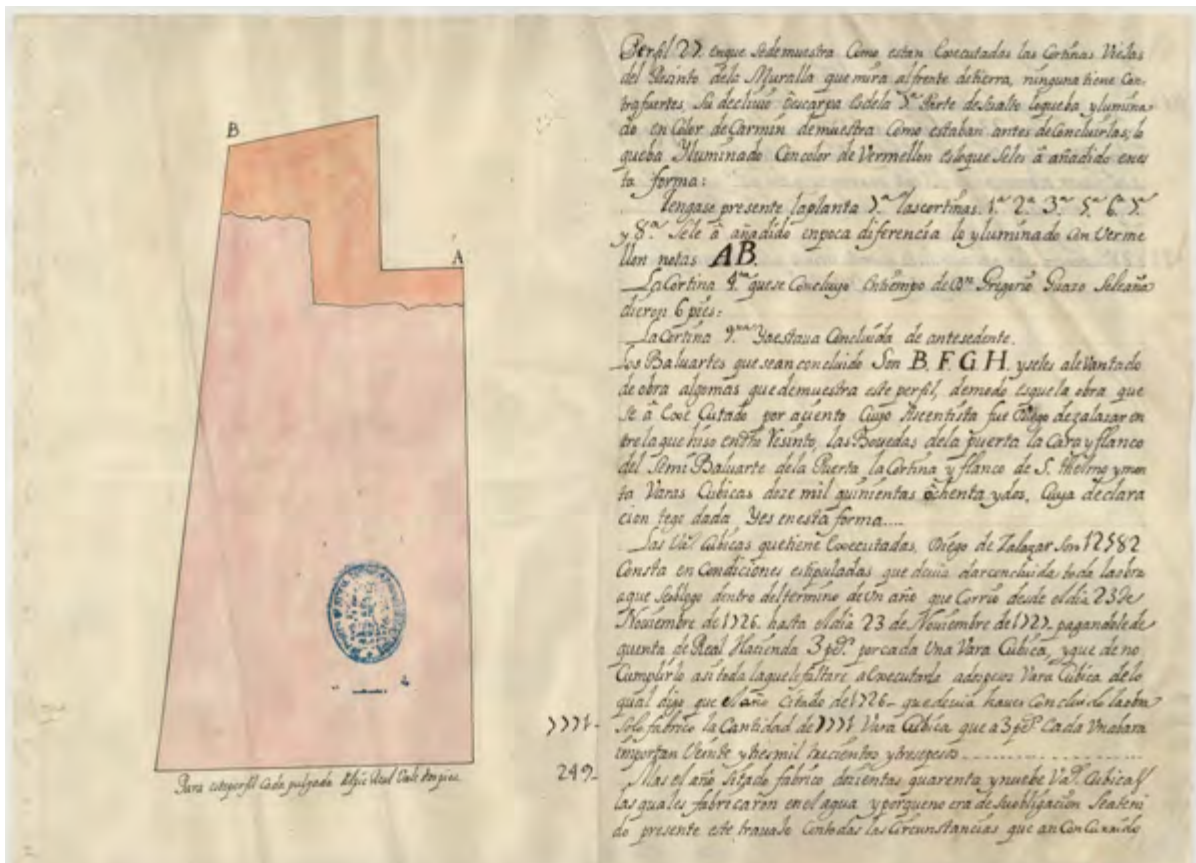 B
A
Para este perfil Cada pulgada del pie Real Vale Un pie.
Perfil 27. enque sedemuestra Como estan Executadas las Cortinas Viejas
del Recinto dela Muralla que mira alfrente detierra, ninguna tiene Con-
trafuertes, Su declivio ò escarpa es dela 7.ª Parte desu alto loqueba ylumina-
do en Color de Carmin demuestra Como estaban antes de Concluirlas; lo
queba Yluminado Con color de Vermellon es loque seles â añadido en es
ta forma:
Tengase presente laplanta 7.ª lascortinas. 1.ª 2.ª 3.ª 5.ª 6.ª 7.ª
y 8.ª Sele â añadido enpoca diferencia lo yluminado Con Verme
llon notas AB.
La Cortina 4.ª quese Concluyo entiempo de Dn. Gregorio Guazo Seleaña
dieron 6 pies:
La Cortina 9.na Yaestava Concluida de antesedente.
Los Baluartes que sean concluido Son B. F. G. H. yseles alevantado
de obra algomas que demuestra este perfil, demodo esque la obra que
se â Exe Cutado por acuento Cuyo Ascentista fue Diego dezalazar en
tre la que hiso en dho Resinto, las Bovedas dela puerta la Cara y flanco
del Semi Baluarte dela Puerta la Cortina y flanco de S. Thelmo ymon
ta Varas Cubicas doze mil quinientas ochenta ydos, Cuya declara
cion tego dada Yes enesta forma....
Las Va.s Cubicas quetiene Executadas, Diego de Zalazar Son 12582
Consta en Condiciones estipuladas que devia darconcluida toda laobra
aque Seoblego dentro deltermino de Un año que Corrio desde el dia 23 de
Noviembre de 1726. hasta el dia 23 de Noviembre de 1727. pagandole de
quenta de Real Hacienda 3 ps. por cada Una Vara Cubica, yque de no
Cumplirlo asi toda laque le faltare a Executarla ados pesos Vara Cubica, delo
qual digo que el año Citado de 1726- que devia haver Concluido la obra
7771- Solo fabrico la Cantidad de 7771 Vara Cubica que a 3 ps. Cada Una bara
importan Veinte ytresmil trecientos ytrese pesos
249- Mas el año Sitado fabrico docientas quarenta ynuebe Va.s Cubicas
las quales fabricaron en el agua y porque no era de suobligacion Seateni
do presente este travajo Contodas las Circunstancias que an Con Currido